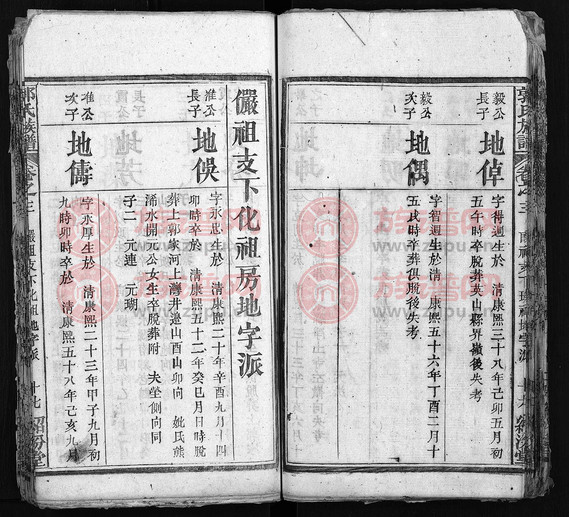 毅公
長子
地倬
字得週生於 清康熙三十八年己卯五月初
五午時卒脫葬英山縣界嶺後失考
毅公
次子
地偶
字習週生於清 康熙五十六年丁酉二月十
五戌時卒葬俱脫後失考
儼祖支下化祖房地字派
准公
長子
地俁
字永思生於 清康熙二十年辛酉九月十四
卯時卒於 清康熙五十二年癸巳月日時脫
葬上郭家河上灣井邊山酉山卯向 妣氏熊
涌水開元公女生卒脫葬附 夫塋側向同
子二 元連 元瑚
准公
次子
地儔
字永厚生於 清康熙二十三年甲子九月初
九時卯時卒於 清康熙五十八年己亥九月
郭氏族譜
卷之三
儼祖支下化祖地字派
郭氏族譜
卷之三
族譜网